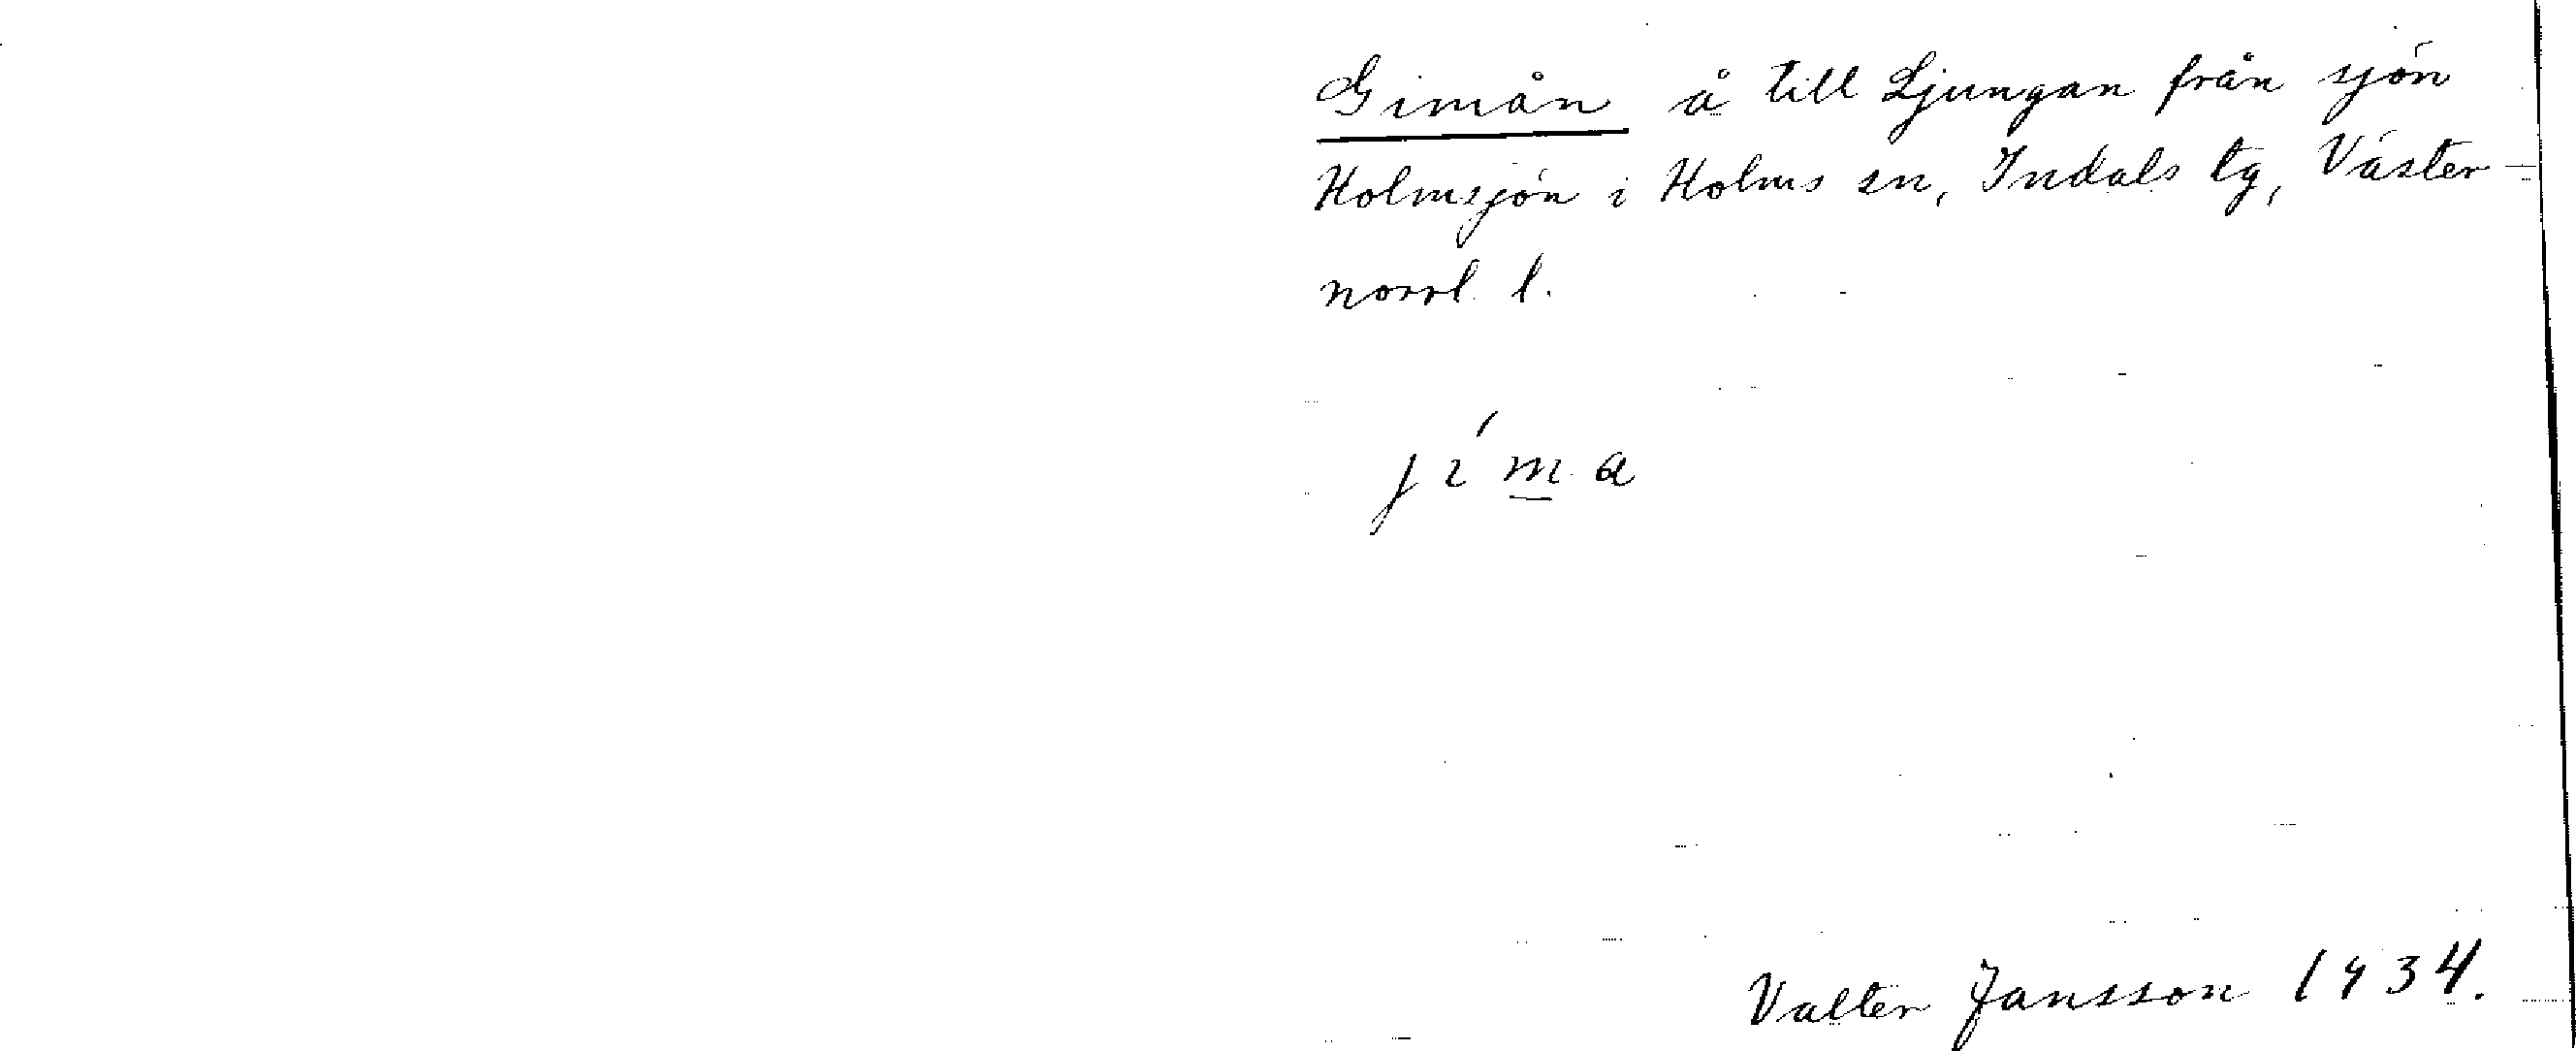 Gimån å till Ljungan från sjön
Holmsjön i Holms sn, Indals tg, Väster-
norrl. l.
jíma
Valter Jansson 1934.